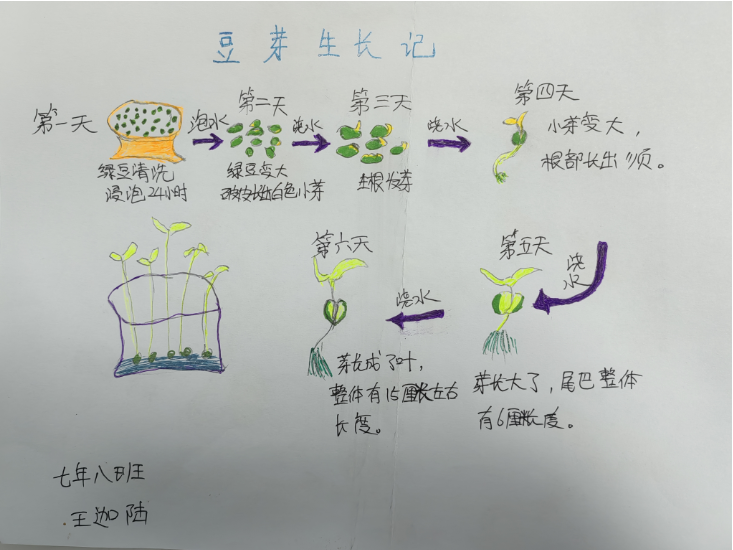 豆芽生长记
第一天
绿豆清洗
浸泡24小时
泡水
第二天
绿豆变大
破皮长出白色小芽
浇水
第三天
生根发芽
浇水
第四天
小芽变大，
根部长出须。
浇水
第五天
芽长大了，尾巴整体
有6厘米长度。
浇水
第六天
芽长成了叶，
整体有15厘米左右
长度。
七年八班
王迦陆